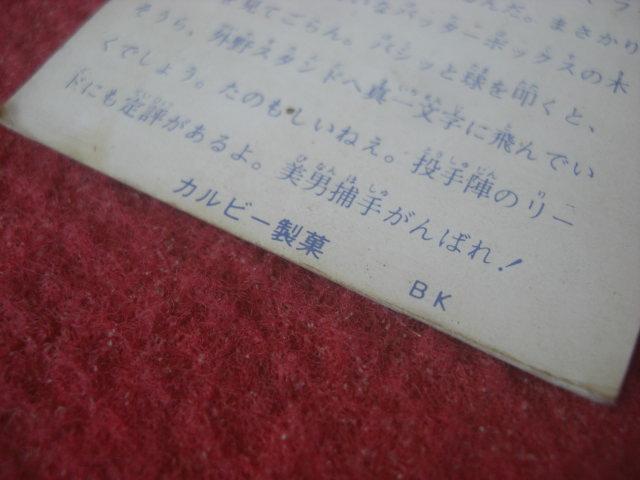 んだ。まさかり
見てごらん。バシッと球を叩くと、
そうら、外野スタンドへ真一文字に飛んでい
くでしょう。たのもしいねえ。投手陣のリー
ドにも定評があるよ。美男捕手がんばれ！
カルビー製菓
BK